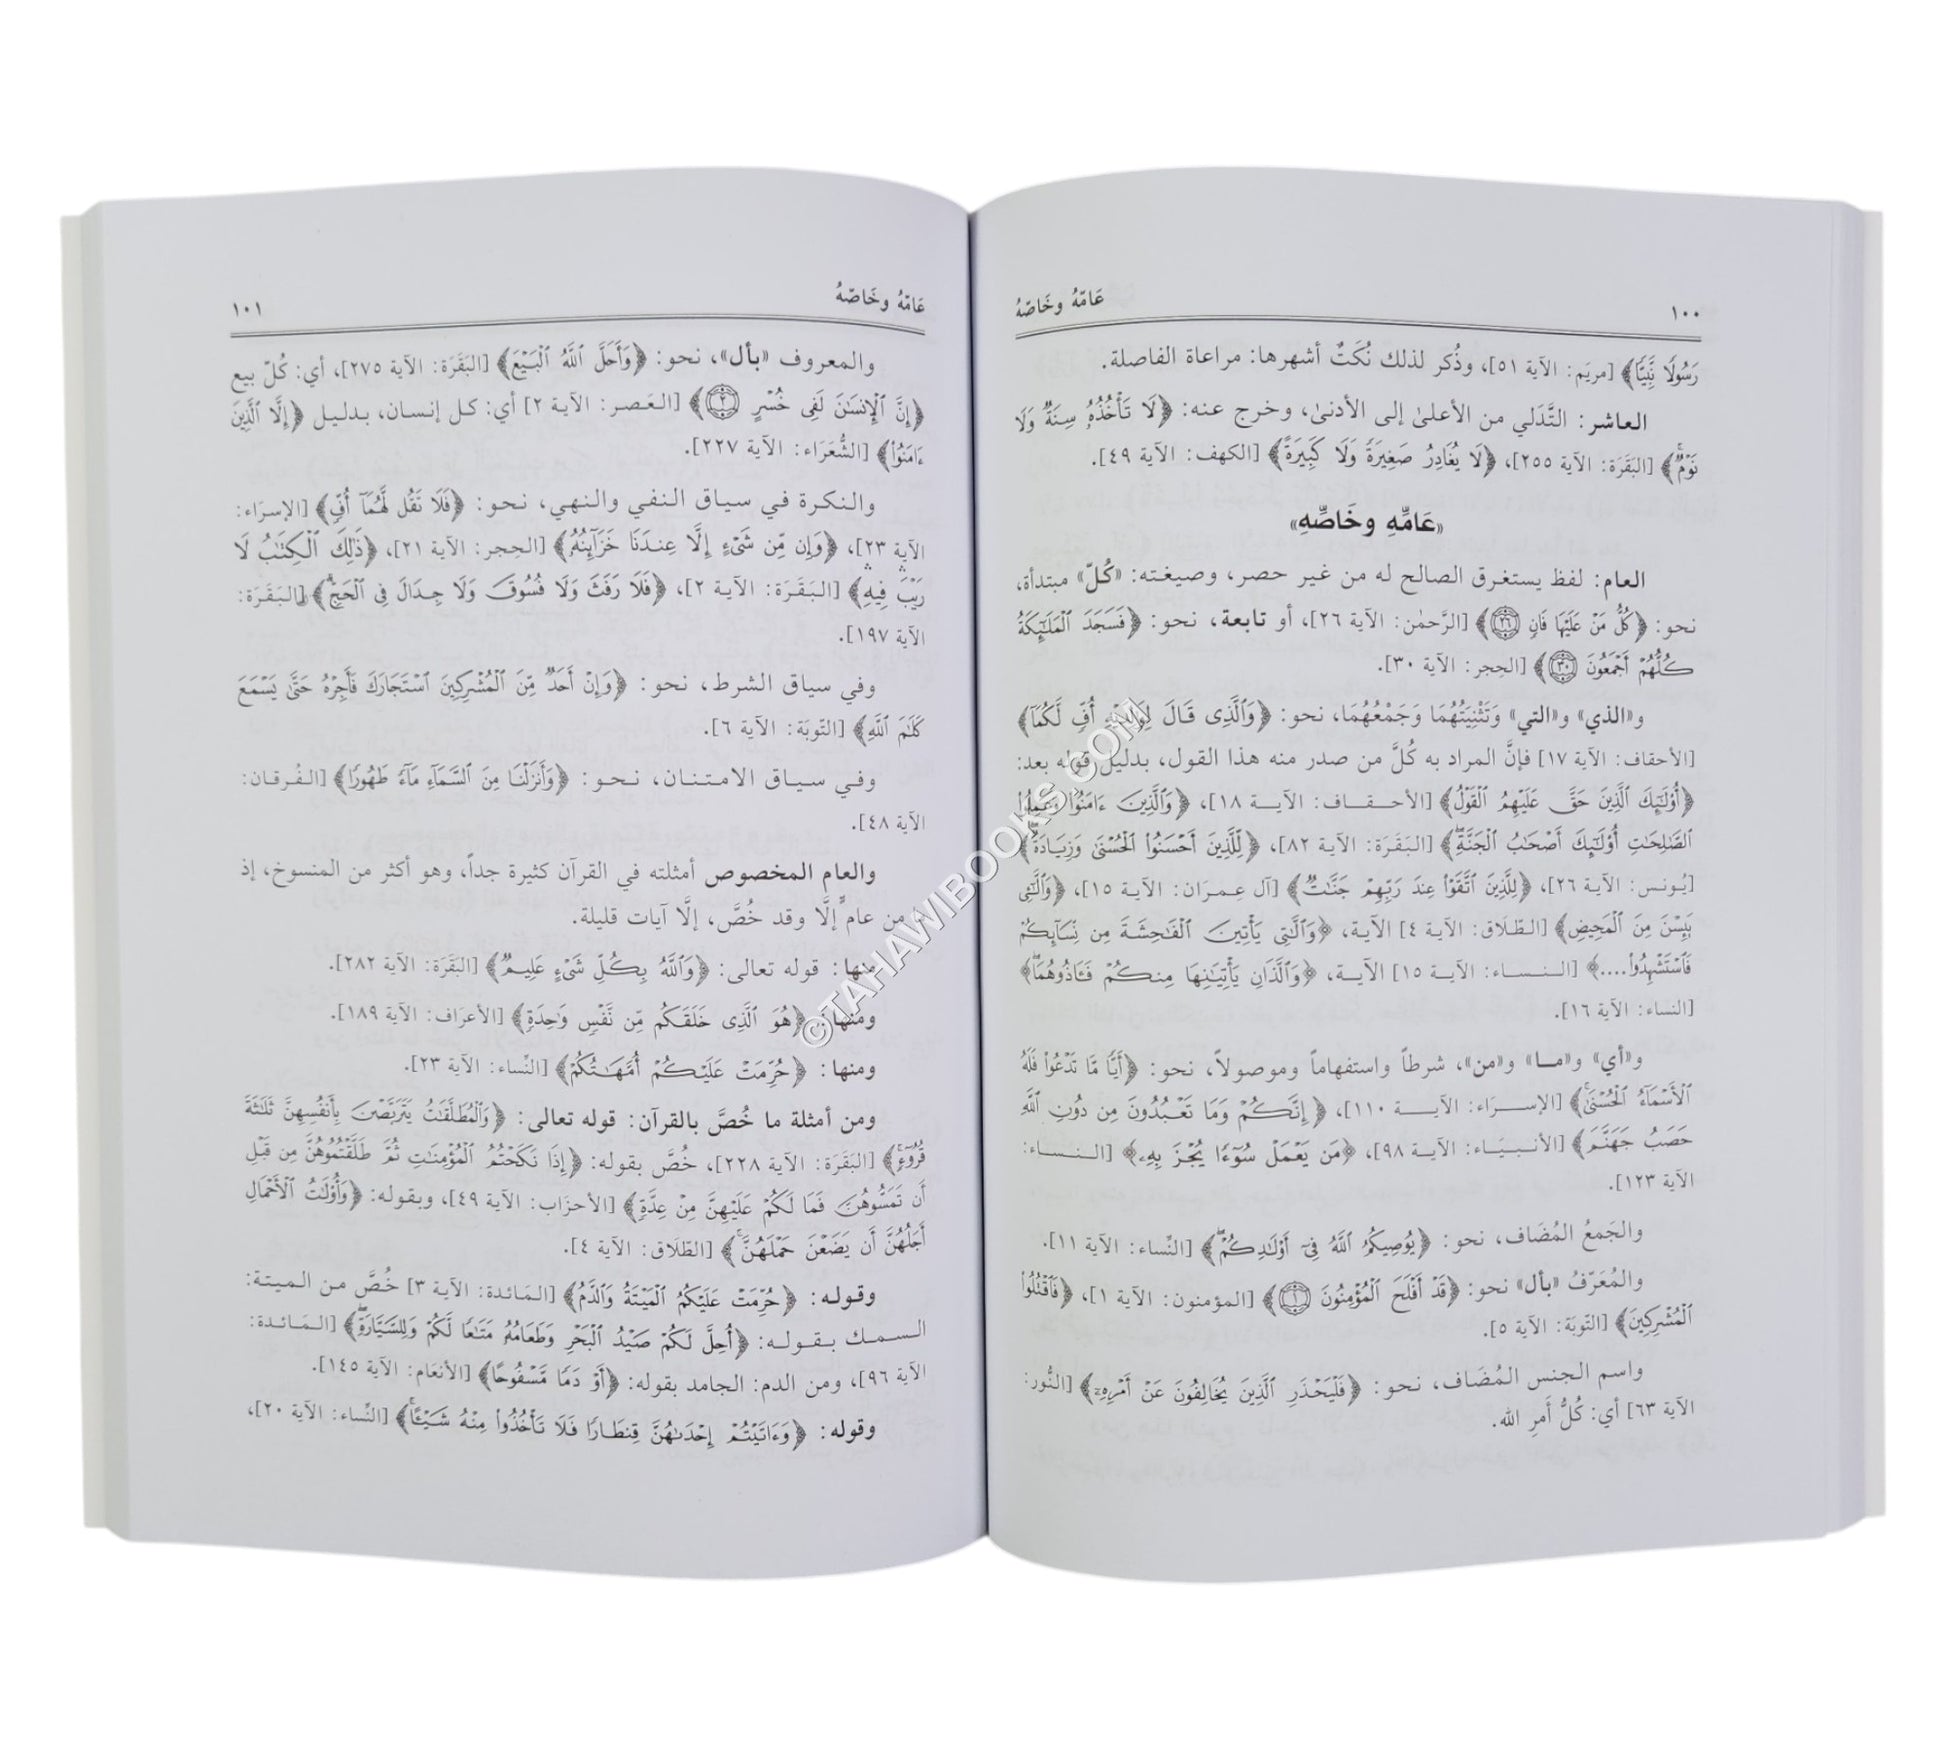 ١٠٠ عَامّهُ وخَاصّهُ
رَسُولًا نَّبِيًّا﴾ [مريَم: الآية ٥١]، وذُكر لذلك نُكَتٌ أشهرها: مراعاة الفاصلة.
العاشر: التَّدَلي من الأعلىٰ إلى الأدنىٰ، وخرج عنه: ﴿لَا تَأْخُذُهُۥ سِنَةٌ وَلَا
نَوْمٌ﴾ [البَقَرَة: الآية ٢٥٥]، ﴿لَا يُغَادِرُ صَغِيرَةً وَلَا كَبِيرَةً﴾ [الكهف: الآية ٤٩].
«عَامِّهِ وخَاصِّهِ»
العام: لفظ يستغرق الصالح له من غير حصر، وصيغته: «كُلّ» مبتدأة،
نحو: ﴿كُلُّ مَنْ عَلَيْهَا فَانٍ ۝٢٦﴾ [الرَّحمٰن: الآية ٢٦]، أو تابعة، نحو: ﴿فَسَجَدَ ٱلْمَلَٰٓئِكَةُ
كُلُّهُمْ أَجْمَعُونَ ۝٣٠﴾ [الحِجر: الآية ٣٠].
و«الذي» و«التي» وَتَثْنِيَتُهُمَا وَجَمْعُهُمَا، نحو: ﴿وَٱلَّذِى قَالَ لِوَٰلِدَيْهِ أُفٍّ لَّكُمَآ﴾
[الأحقاف: الآية ١٧] فإنَّ المراد به كُلَّ من صدر منه هذا القول، بدليل قوله بعد:
﴿أُو۟لَٰٓئِكَ ٱلَّذِينَ حَقَّ عَلَيْهِمُ ٱلْقَوْلُ﴾ [الأحـقـاف: الآيـة ١٨]، ﴿وَٱلَّذِينَ ءَامَنُوا۟ وَعَمِلُوا۟
ٱلصَّٰلِحَٰتِ أُو۟لَٰٓئِكَ أَصْحَٰبُ ٱلْجَنَّةِ﴾ [البَقَرَة: الآية ٨٢]، ﴿لِّلَّذِينَ أَحْسَنُوا۟ ٱلْحُسْنَىٰ وَزِيَادَةٌ﴾
[يُونس: الآية ٢٦]، ﴿لِلَّذِينَ ٱتَّقَوْا۟ عِندَ رَبِّهِمْ جَنَّٰتٌ﴾ [آل عِمرَان: الآية ١٥]، ﴿وَٱلَّٰٓـِٔى
يَئِسْنَ مِنَ ٱلْمَحِيضِ﴾ [الطّلَاق: الآية ٤] الآية، ﴿وَٱلَّٰتِى يَأْتِينَ ٱلْفَٰحِشَةَ مِن نِّسَآئِكُمْ
فَٱسْتَشْهِدُوا۟....﴾ [النـسـاء: الآيـة ١٥] الآية، ﴿وَٱلَّذَانِ يَأْتِيَٰنِهَا مِنكُمْ فَـَٔاذُوهُمَا﴾
[النساء: الآية ١٦].
و«أي» و«مـا» و«من»، شرطاً واستفهاماً وموصولاً، نحو: ﴿أَيًّا مَّا تَدْعُوا۟ فَلَهُ
ٱلْأَسْمَآءُ ٱلْحُسْنَىٰ﴾ [الإسـرَاء: الآيـة ١١٠]، ﴿إِنَّكُمْ وَمَا تَعْبُدُونَ مِن دُونِ ٱللَّهِ
حَصَبُ جَهَنَّمَ﴾ [الأنـبـيَـاء: الآيـة ٩٨]، ﴿مَن يَعْمَلْ سُوٓءًا يُجْزَ بِهِۦ﴾ [الـنـسـاء:
الآية ١٢٣].
والجَمعُ المُضَاف، نحو: ﴿يُوصِيكُمُ ٱللَّهُ فِىٓ أَوْلَٰدِكُمْ﴾ [النِّساء: الآية ١١].
والمُعَرّفُ «بأل» نحو: ﴿قَدْ أَفْلَحَ ٱلْمُؤْمِنُونَ ۝١﴾ [المؤمنون: الآية ١]، ﴿فَٱقْتُلُوا۟
ٱلْمُشْرِكِينَ﴾ [التّوبَة: الآية ٥].
واسم الجنس المُضَاف، نحو: ﴿فَلْيَحْذَرِ ٱلَّذِينَ يُخَالِفُونَ عَنْ أَمْرِهِۦٓ﴾ [النُّور:
الآية ٦٣] أي: كُلُّ أَمرِ الله.
عَامّهُ وخَاصّهُ ١٠١
والمعروف «بأل»، نحو: ﴿وَأَحَلَّ ٱللَّهُ ٱلْبَيْعَ﴾ [البَقَرَة: الآية ٢٧٥]، أي: كُلّ بيع
﴿إِنَّ ٱلْإِنسَٰنَ لَفِى خُسْرٍ ۝٢﴾ [العَصر: الآية ٢] أي: كل إنسان، بدليل ﴿إِلَّا ٱلَّذِينَ
ءَامَنُوا۟﴾ [الشُّعَرَاء: الآية ٢٢٧].
والنكرة في سياق النفي والنهي، نحو: ﴿فَلَا تَقُل لَّهُمَآ أُفٍّ﴾ [الإسرَاء:
الآية ٢٣]، ﴿وَإِن مِّن شَىْءٍ إِلَّا عِندَنَا خَزَآئِنُهُۥ﴾ [الحِجر: الآية ٢١]، ﴿ذَٰلِكَ ٱلْكِتَٰبُ لَا
رَيْبَ فِيهِ﴾ [البَقَرَة: الآية ٢]، ﴿فَلَا رَفَثَ وَلَا فُسُوقَ وَلَا جِدَالَ فِى ٱلْحَجِّ﴾ [البَقَرَة:
الآية ١٩٧].
وفي سياق الشرط، نحو: ﴿وَإِنْ أَحَدٌ مِّنَ ٱلْمُشْرِكِينَ ٱسْتَجَارَكَ فَأَجِرْهُ حَتَّىٰ يَسْمَعَ
كَلَٰمَ ٱللَّهِ﴾ [التّوبَة: الآية ٦].
وفي سياق الامتنان، نحو: ﴿وَأَنزَلْنَا مِنَ ٱلسَّمَآءِ مَآءً طَهُورًا﴾ [الفُرقان:
الآية ٤٨].
والعام المخصوص أمثلته في القرآن كثيرة جداً، وهو أكثر من المنسوخ، إذ
من عام إلَّا وقد خُصَّ، إلَّا آيات قليلة.
منها: قوله تعالى: ﴿وَٱللَّهُ بِكُلِّ شَىْءٍ عَلِيمٌ﴾ [البَقَرَة: الآية ٢٨٢].
ومنها: ﴿هُوَ ٱلَّذِى خَلَقَكُم مِّن نَّفْسٍ وَٰحِدَةٍ﴾ [الأعرَاف: الآية ١٨٩].
ومنها: ﴿حُرِّمَتْ عَلَيْكُمْ أُمَّهَٰتُكُمْ﴾ [النِّساء: الآية ٢٣].
ومن أمثلة ما خُصَّ بالقرآن: قوله تعالى: ﴿وَٱلْمُطَلَّقَٰتُ يَتَرَبَّصْنَ بِأَنفُسِهِنَّ ثَلَٰثَةَ
قُرُوٓءٍ﴾ [البَقَرَة: الآية ٢٢٨]، خُصَّ بقوله: ﴿إِذَا نَكَحْتُمُ ٱلْمُؤْمِنَٰتِ ثُمَّ طَلَّقْتُمُوهُنَّ مِن قَبْلِ
أَن تَمَسُّوهُنَّ فَمَا لَكُمْ عَلَيْهِنَّ مِنْ عِدَّةٍ﴾ [الأحزَاب: الآية ٤٩]، وبقوله: ﴿وَأُو۟لَٰتُ ٱلْأَحْمَالِ
أَجَلُهُنَّ أَن يَضَعْنَ حَمْلَهُنَّ﴾ [الطّلَاق: الآية ٤].
وقوله: ﴿حُرِّمَتْ عَلَيْكُمُ ٱلْمَيْتَةُ وَٱلدَّمُ﴾ [المَائدة: الآية ٣] خُصَّ من الميتة:
السمك بقوله: ﴿أُحِلَّ لَكُمْ صَيْدُ ٱلْبَحْرِ وَطَعَامُهُۥ مَتَٰعًا لَّكُمْ وَلِلسَّيَّارَةِ﴾ [المَائدة:
الآية ٩٦]، ومن الدم: الجامد بقوله: ﴿أَوْ دَمًا مَّسْفُوحًا﴾ [الأنعَام: الآية ١٤٥].
وقوله: ﴿وَءَاتَيْتُمْ إِحْدَىٰهُنَّ قِنطَارًا فَلَا تَأْخُذُوا۟ مِنْهُ شَيْـًٔا﴾ [النِّساء: الآية ٢٠]،
©TAHAWIBOOKS.COM